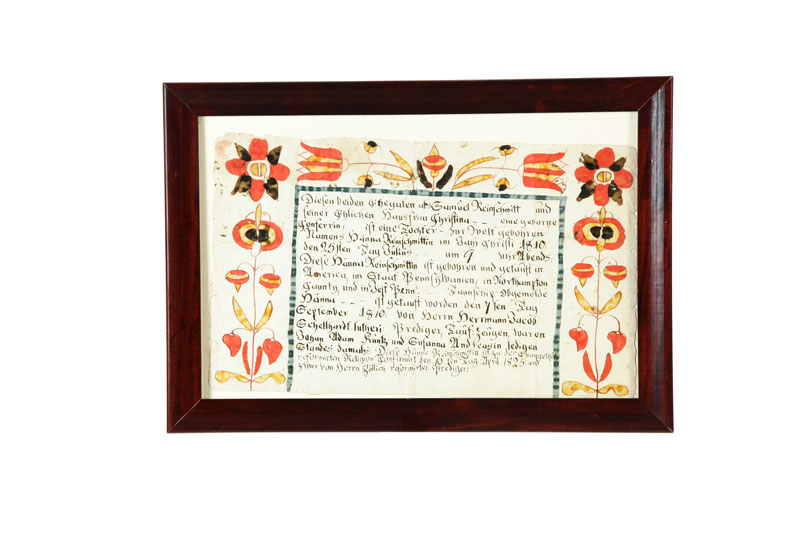 Diesen beiden Ehegaten als Samuel Reinschmitt und
seiner Ehlichen Hausfrau Christina -- eine geborne
ist eine Tochter - zur Welt gebohren
Namens Hänna Reinschmittin im Jahr Christi 1810
den 25sten Tag Julius -- um 9 uhr Abends
Diese Hänna Reinschmittin ist gebohren und getauft in
America, im Staat Pennsylvanien, in Northampton
Caunty, und in West Penn Taunschip Obgemelde
Hänna --- ist getauft worden den 7ten Tag
September 1810 von Herrn Herrmann Jacob
Schellhardt luther: Prediger, Taufzeugen waren
Johan Adam Kuntz und Susanna Andreasin ledigen
Standes damals Diese Hänne Reinschmittin ist zu der Evangelisch
reformirten Religion Confirmirt den Tag April 1825 und
zwar von Herrn Zullich reformirter Prediger: